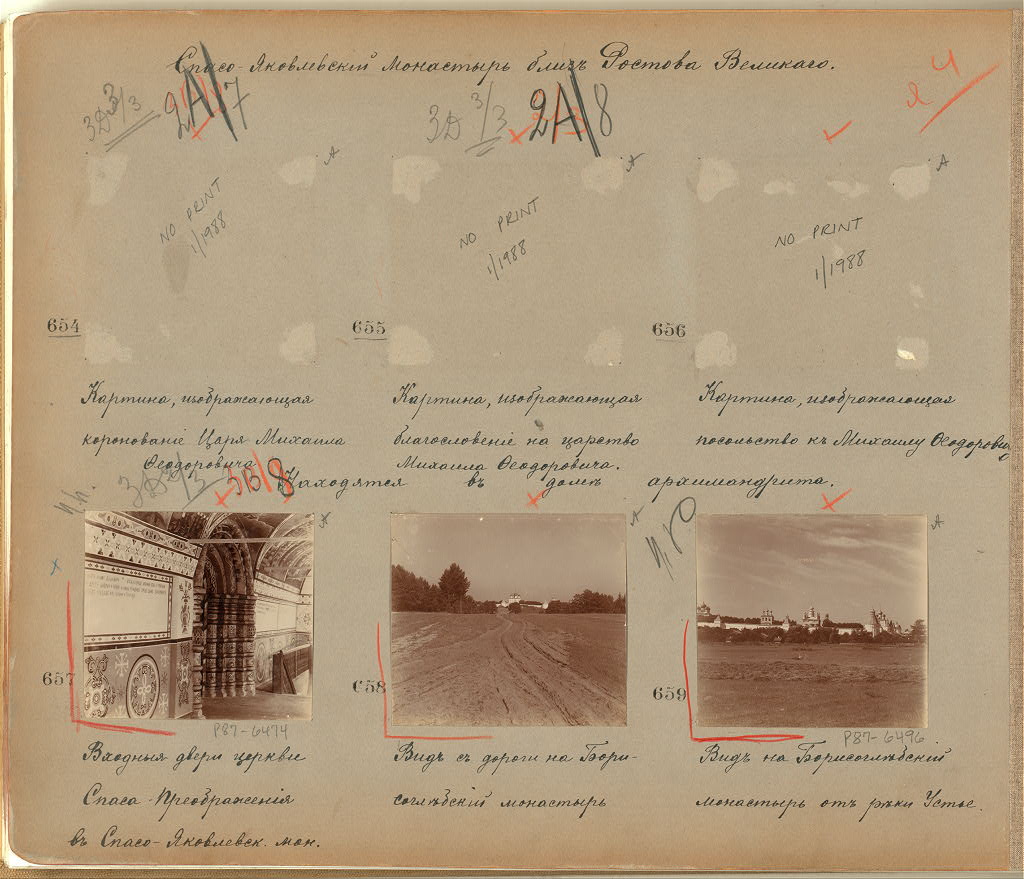 Спасо-Яковлевскій монастырь близъ Ростова Великаго.
3Д 3/3 2А/7
3Д 3/3 2А/8
Я 4
А
А
А
NO PRINT
1/1988
NO PRINT
1/1988
NO PRINT
1/1988
654
655
656
Картина, изображающая
коронованіе Царя Михаила
Ѳеодоровича.
Картина, изображающая
благословеніе на царство
Михаила Ѳеодоровича.
Картина, изображающая
посольство къ Михаилу Ѳеодоровичу
Находятся въ домѣ архимандрита.
3В 8
А
А
А
657
658
659
P87-6474
P87-6496
Входныя двери церкви
Спаса-Преображенія
въ Спасо-Яковлевск. мон.
Видъ съ дороги на Бори-
соглѣбскій монастырь
Видъ на Борисоглѣбскій
монастырь отъ рѣки Устье.